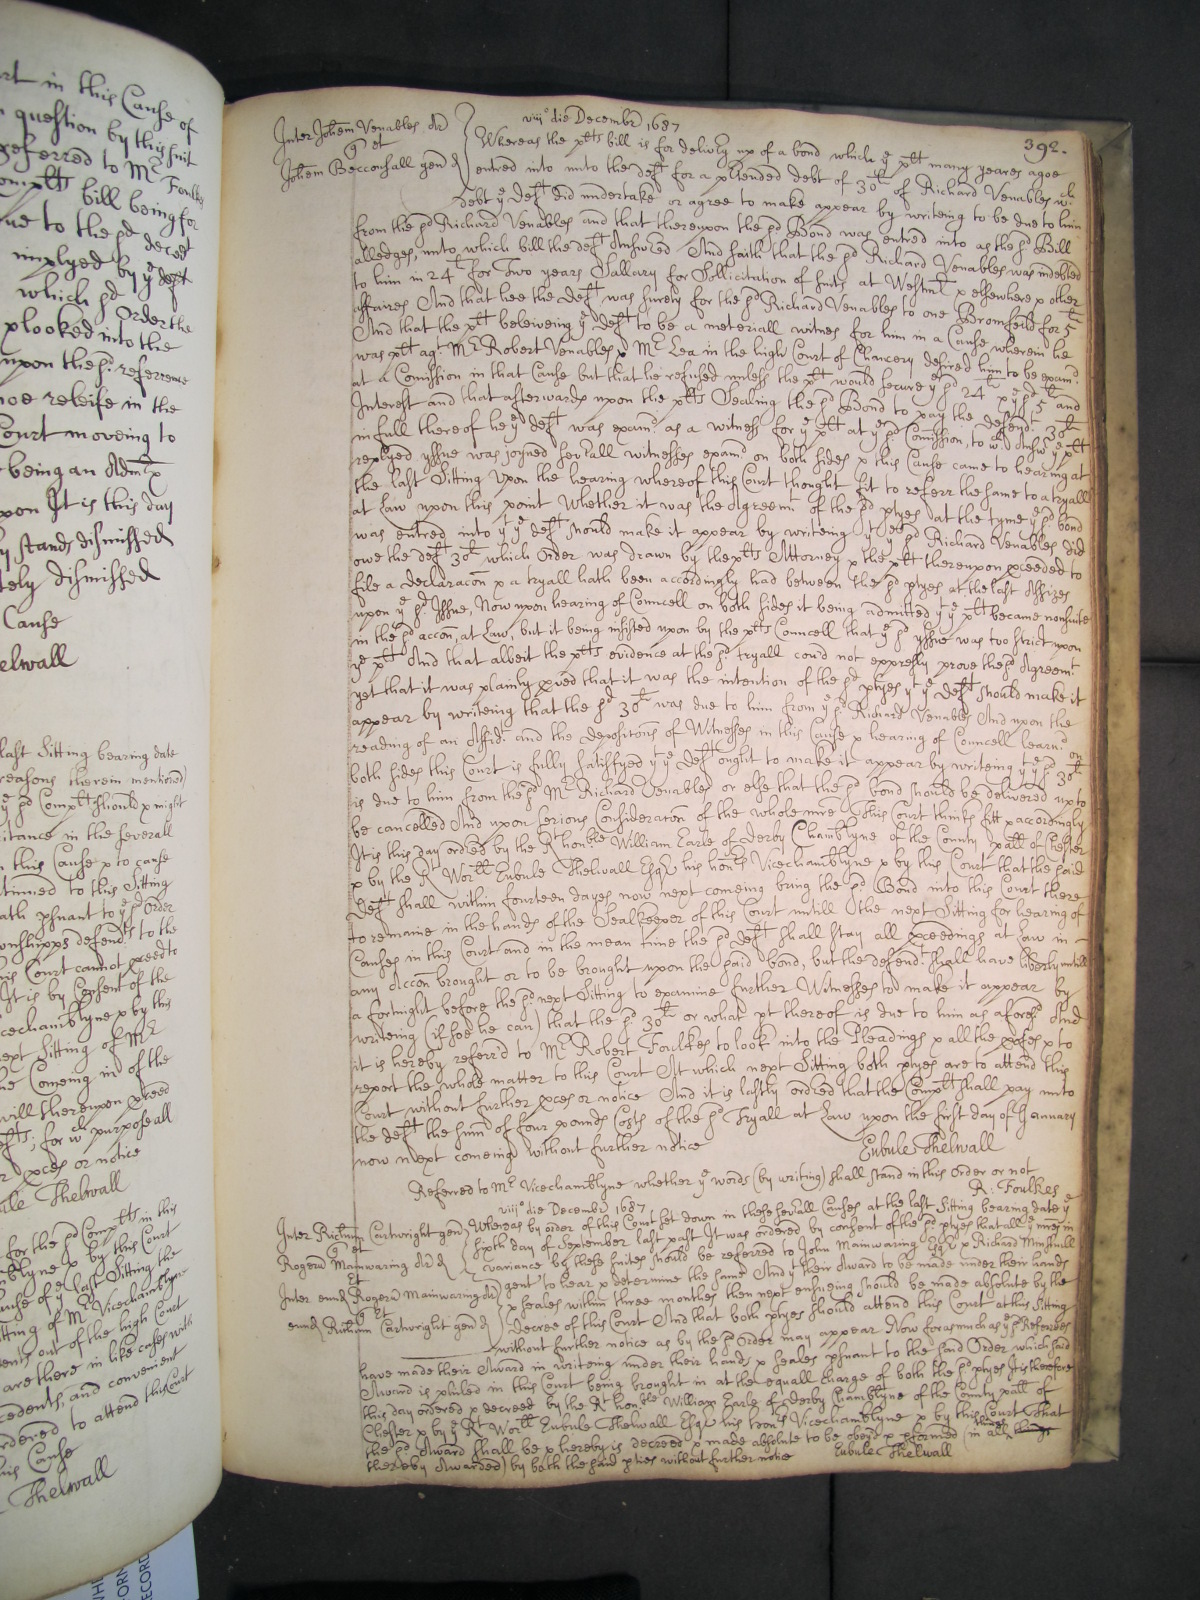 392.
viij° die Decembr 1687
Inter Johem Venables Ar
q et
Johem Becconsall gen d
Whereas the plts bill is for delivy up of a bond which ye plt many yeares agoe
entred into unto the deft for a pretended debt of 30li of Richard Venables wch
debt ye deft did undertake or agree to make appear by writeing to be due to him
from the sd Richard Venables and that thereupon the sd Bond was entred into as the sd Bill
alledges, unto which bill the deft Answred And saith that the sd Richard Venables was indebted
to him in 24li for Two years Sallary for Sollicitation of suits at Westmr & elsewhere & other
affaires And that hee the deft was surety for the sd Richard Venables to one Bromfeild for 5li
And that the plt beleiveing ye deft to be a materiall witnes for him in a Cause wherein he
was plt agt Mr Robert Venables & Mr Lea in the high Court of Chancery desired him to be examd
at a Comission in that Cause but that he refused unless the plt would secure ye sd 24li & ye sd 5li and
Interest and that afterwards upon the plts Sealing the sd Bond to pay the defendt 30li
in full thereof he ye deft was examd as a witness for ye plt at ye sd Comission, to wch Answr ye plt
replyed yssue was joyned severall witnesses examd on both sides & this Cause came to hearing at
the last Sitting Upon the hearing whereof this Court thought fit to referr the same to a tryall
at Law upon this point Whether it was the Agreemt of the sd ptyes at the tyme ye sd bond
was entred into yt ye deft should make it appear by writeing yt ye sd Richard Venables did
owe the deft 30li which Order was drawn by the plts Attorney & the plt thereupon pceeded to
file a declaracon & a tryall hath been accordingly had between the sd ptyes at the last Assizes
upon ye sd Issue, Now upon hearing of Councell on both sides it being admitted yt ye plt became nonsuite
in the sd accon, at Law, but it being insisted upon by the plts Councell that ye sd yssue was too strict upon
ye plt And that albeit the plts evidence at the sd tryall could not expresly prove the sd Agreemt
yet that it was plainly pved that it was the intention of the sd ptyes yt ye deft should make it
appear by writeing that the sd 30li was due to him from ye sd Richard Venables And upon the
reading of an Affidt and the depositons of Witnesses in this Cause & hearing of Councell learnd on
both sides this Court is fully satisfyed yt ye deft ought to make it appear by writeing yt ye sd 30li
is due to him from the sd Mr Richard Venables or else that the sd bond should be delivered up to
be cancelled And upon serious Consideracon of the whole mre This Court thinks fitt & accordingly
It is this day ordred by the Rt honble William Earle of Derby Chamblyne of the County pall of Chester
& by the Rt Worll Eubule Thelwall Esqr his honrs Vicechamblyne & by this Court that the said
Deft shall within fourteen dayes now next comeing bring the sd Bond into this Court there
to remaine in the hands of the Sealkeeper of this Court untill the next Sitting for hearing of
Causes in this Court and in the mean time the sd deft shall stay all pceedings at Law in
any Accon brought or to be brought upon the said bond, but the defendt shall have liberty untill
a fortnight before the sd next Sitting to examine further Witnesses to make it appear by
writeing (if soe he can) that the sd 30li or what pt thereof is due to him as aforesd And
it is hereby referr'd to Mr Robert Foulkes to look into the Pleadings & all the pofes & to
report the whole matter to this Court At which next Sitting both ptyes are to attend this
Court without further pces or notice And it is lastly ordred that the Complt shall pay unto
the deft the sum of four pounds Costs of the sd Tryall at Law upon the first day of January
now next comeing without further notice
Eubule Thelwall
Referred to Mr Vicechamblyne whether ye words (by writing) shall stand in this Order or not
R: Foulkes
viij° die Decembr 1687
Inter Richum Cartwright gen
q et
Rogeru Mainwaring Ar d
et
Inter eund Rogeru Mainwaring Ar
q et
eund Richum Cartwright gen d
Whereas by order of this Court set down in these severall Causes at the last Sitting bearing date ye
sixth day of September last past It was ordered by consent of the sd ptyes that all ye mres in
variance by these suites should be referred to John Mainwaring Esqr & Richard Minshull
gent to hear & determine the same And yt their Award to be made under their hands
& seales within three monthes then next ensueing should be made absolute by the
decree of this Court And that both ptyes should attend this Court at this Sitting
without further notice as by the sd Order may appear Now forasmuch as ye sd Referrees
have made their Award in writeing under their hands & seales psuant to the said Order which said
Award is in this Court being brought in at the equall charge of both the sd ptyes It is therefore
this day ordered & decreed by the Rt honble William Earle of Derby Chamblyne of the County pall of
Chester & by ye Rt Worll Eubule Thelwall Esqr his honrs Vicechamblyne & by this Court That
the sd Award shall be & hereby is decreed & made absolute to be obeyd & pformed (in all things
thereby Awarded) by both the said pties without further notice
Eubule Thelwall